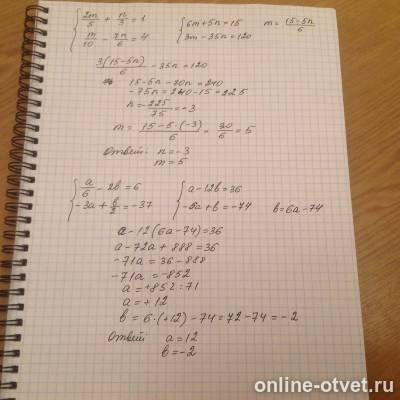 { 2m/5 + n/3 = 1 { 6m+5n=15 m = (15-5n)/6
{ m/10 - 7n/6 = 4 { 3m-35n=120
3(15-5n)/6 - 35n=120
15-5n-70n=240
-75n=240-15=225
n=-225/75=-3
m = (15-5·(-3))/6 = 30/6 = 5
Ответ: n=-3
m=5
{ a/6 - 2b=6 { a-12b=36
{ -3a+b/2=-37 { -6a+b=-74 b=6a-74
a-12(6a-74)=36
a-72a+888=36
-71a=36-888
-71a=-852
a=+852:71
a=+12
b=6·(+12)-74=72-74=-2
Ответ: a=12
b=-2
online-otvet.ru